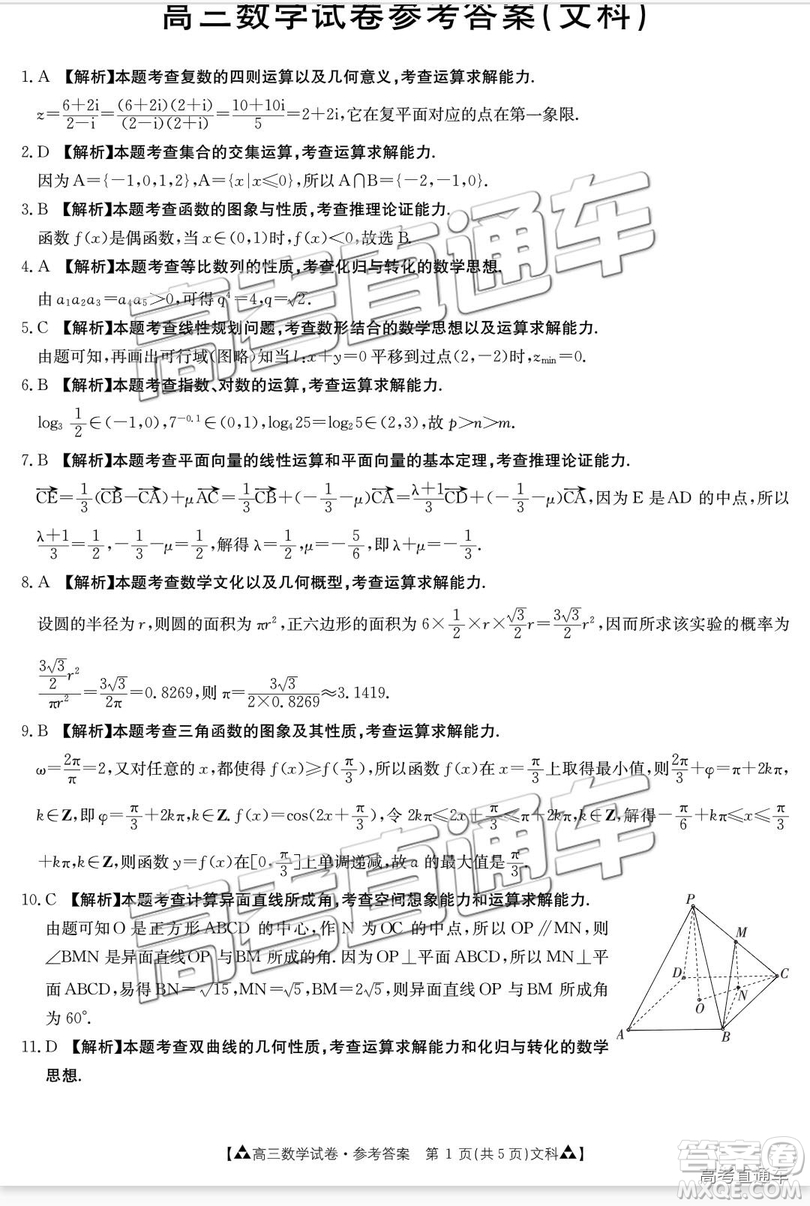 高三数学试卷参考答案(文科)
1. A 【解析】本题考查复数的四则运算以及几何意义,考查运算求解能力.
z=\frac{6+2i}{2-i}=\frac{(6+2i)(2+i)}{(2-i)(2+i)}=\frac{10+10i}{5}=2+2i,它在复平面对应的点在第一象限.
2. D 【解析】本题考查集合的交集运算,考查运算求解能力.
因为A={-1,0,1,2},A={x|x≤0},所以A∩B={-2,-1,0}.
3. B 【解析】本题考查函数的图象与性质,考查推理论证能力.
函数f(x)是偶函数,当x∈(0,1)时,f(x)<0,故选B.
4. A 【解析】本题考查等比数列的性质,考查化归与转化的数学思想.
由a₁a₂a₃=a₄a₅>0,可得q⁴=4,q=√2.
5. C 【解析】本题考查线性规划问题,考查数形结合的数学思想以及运算求解能力.
由题可知,再画出可行域(图略)知当l:x+y=0平移到过点(2,-2)时,z_{min}=0.
6. B 【解析】本题考查指数、对数的运算,考查运算求解能力.
log₃\frac{1}{2}∈(-1,0),7^{-0.1}∈(0,1),log₄25=log₂5∈(2,3),故p>n>m.
7. B 【解析】本题考查平面向量的线性运算和平面向量的基本定理,考查推理论证能力.
\overrightarrow{CE}=\frac{1}{3}(\overrightarrow{CB}-\overrightarrow{CA})+μ\overrightarrow{AC}=\frac{1}{3}\overrightarrow{CB}+(-\frac{1}{3}-μ)\overrightarrow{CA}=\frac{λ+1}{3}\overrightarrow{CD}+(-\frac{1}{3}-μ)\overrightarrow{CA},因为E是AD的中点,所以
\frac{λ+1}{3}=\frac{1}{2},-\frac{1}{3}-μ=\frac{1}{2},解得λ=\frac{1}{2},μ=-\frac{5}{6},即λ+μ=-\frac{1}{3}.
8. A 【解析】本题考查数学文化以及几何概型,考查运算求解能力.
设圆的半径为r,则圆的面积为πr²,正六边形的面积为6×\frac{1}{2}×r×\frac{√3}{2}r=\frac{3√3}{2}r²,因而所求该实验的概率为
\frac{\frac{3√3}{2}r²}{πr²}=\frac{3√3}{2π}=0.8269,则π=\frac{3√3}{2×0.8269}≈3.1419.
9. B 【解析】本题考查三角函数的图象及其性质,考查运算求解能力.
ω=\frac{2π}{π}=2,又对任意的x,都使得f(x)≥f(\frac{π}{3}),所以函数f(x)在x=\frac{π}{3}上取得最小值,则\frac{2π}{3}+φ=π+2kπ,
k∈Z,即φ=\frac{π}{3}+2kπ,k∈Z.f(x)=cos(2x+\frac{π}{3}),令2kπ≤2x+\frac{π}{3}≤π+2kπ,k∈Z,解得-\frac{π}{6}+kπ≤x≤\frac{π}{3}
+kπ,k∈Z,则函数y=f(x)在[0,\frac{π}{3}]上单调递减,故a的最大值是\frac{π}{3}.
10. C 【解析】本题考查计算异面直线所成角,考查空间想象能力和运算求解能力.
由题可知O是正方形ABCD的中心,作N为OC的中点,所以OP∥MN,则
∠BMN是异面直线OP与BM所成的角.因为OP⊥平面ABCD,所以MN⊥平
面ABCD,易得BN=√15,MN=√5,BM=2√5,则异面直线OP与BM所成角
为60°.
P
M
D
C
N
O
A
B
11. D 【解析】本题考查双曲线的几何性质,考查运算求解能力和化归与转化的数学
思想.
【高三数学试卷·参考答案 第1页(共5页)文科】
高考直通车
高考直通车
答案圈
高考直通车
MXQE.COM